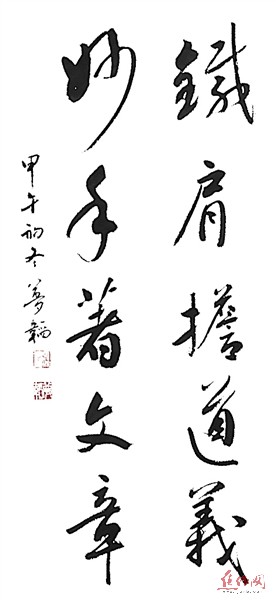 鐵肩擔道義
妙手著文章
甲午初冬夢韜